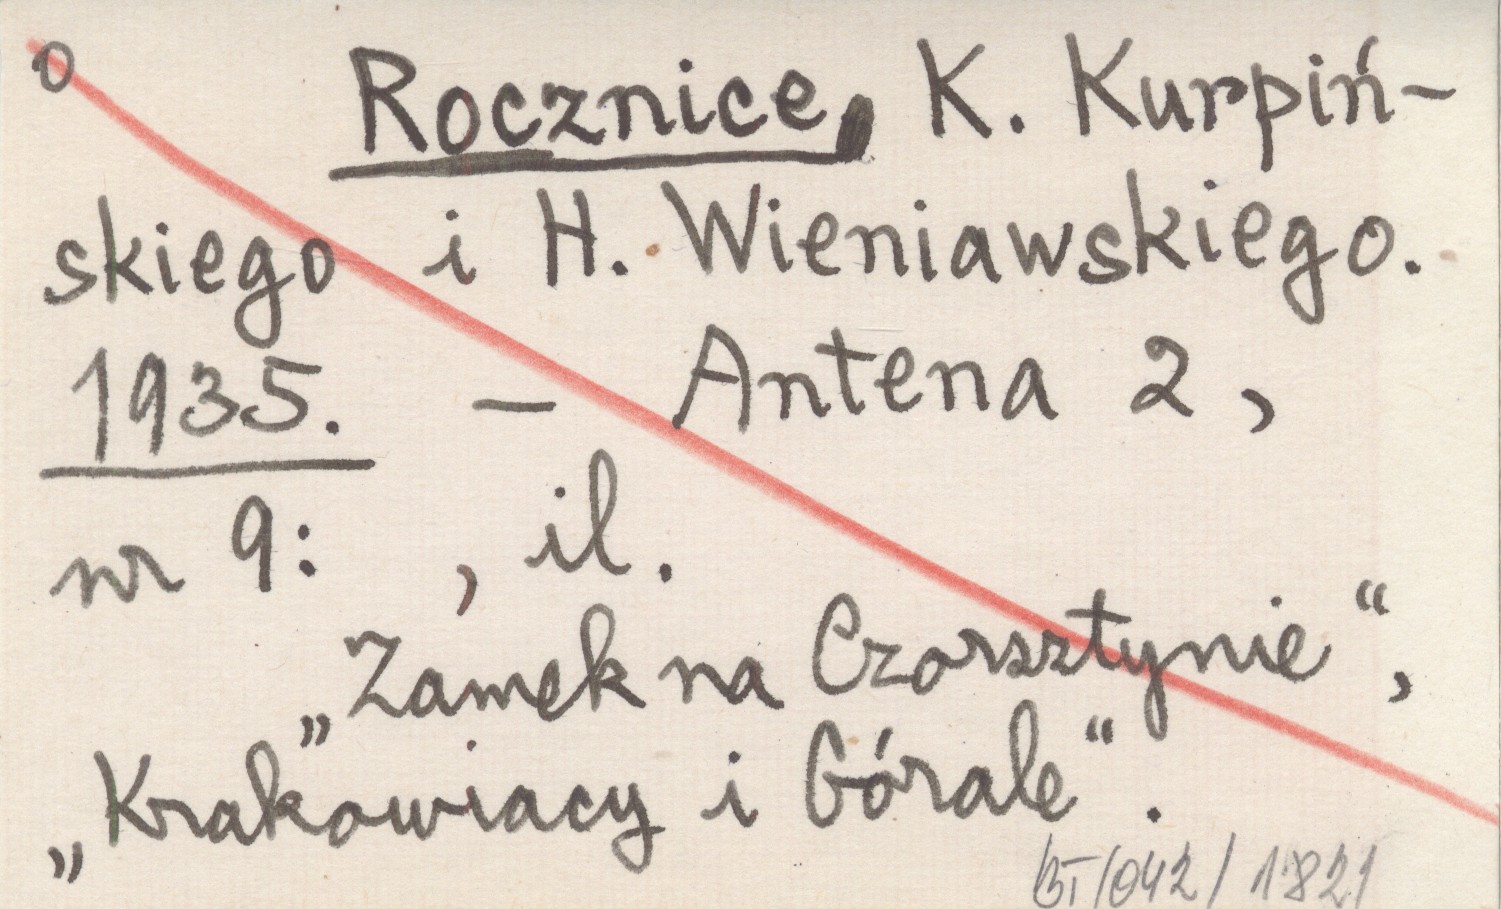 o Rocznice, K. Kurpiń-
skiego i H. Wieniawskiego.
1935. – Antena 2,
nr 9: , il.
„Zamek na Czorsztynie“,
„Krakowiacy i Górale“.
BI/042/1821